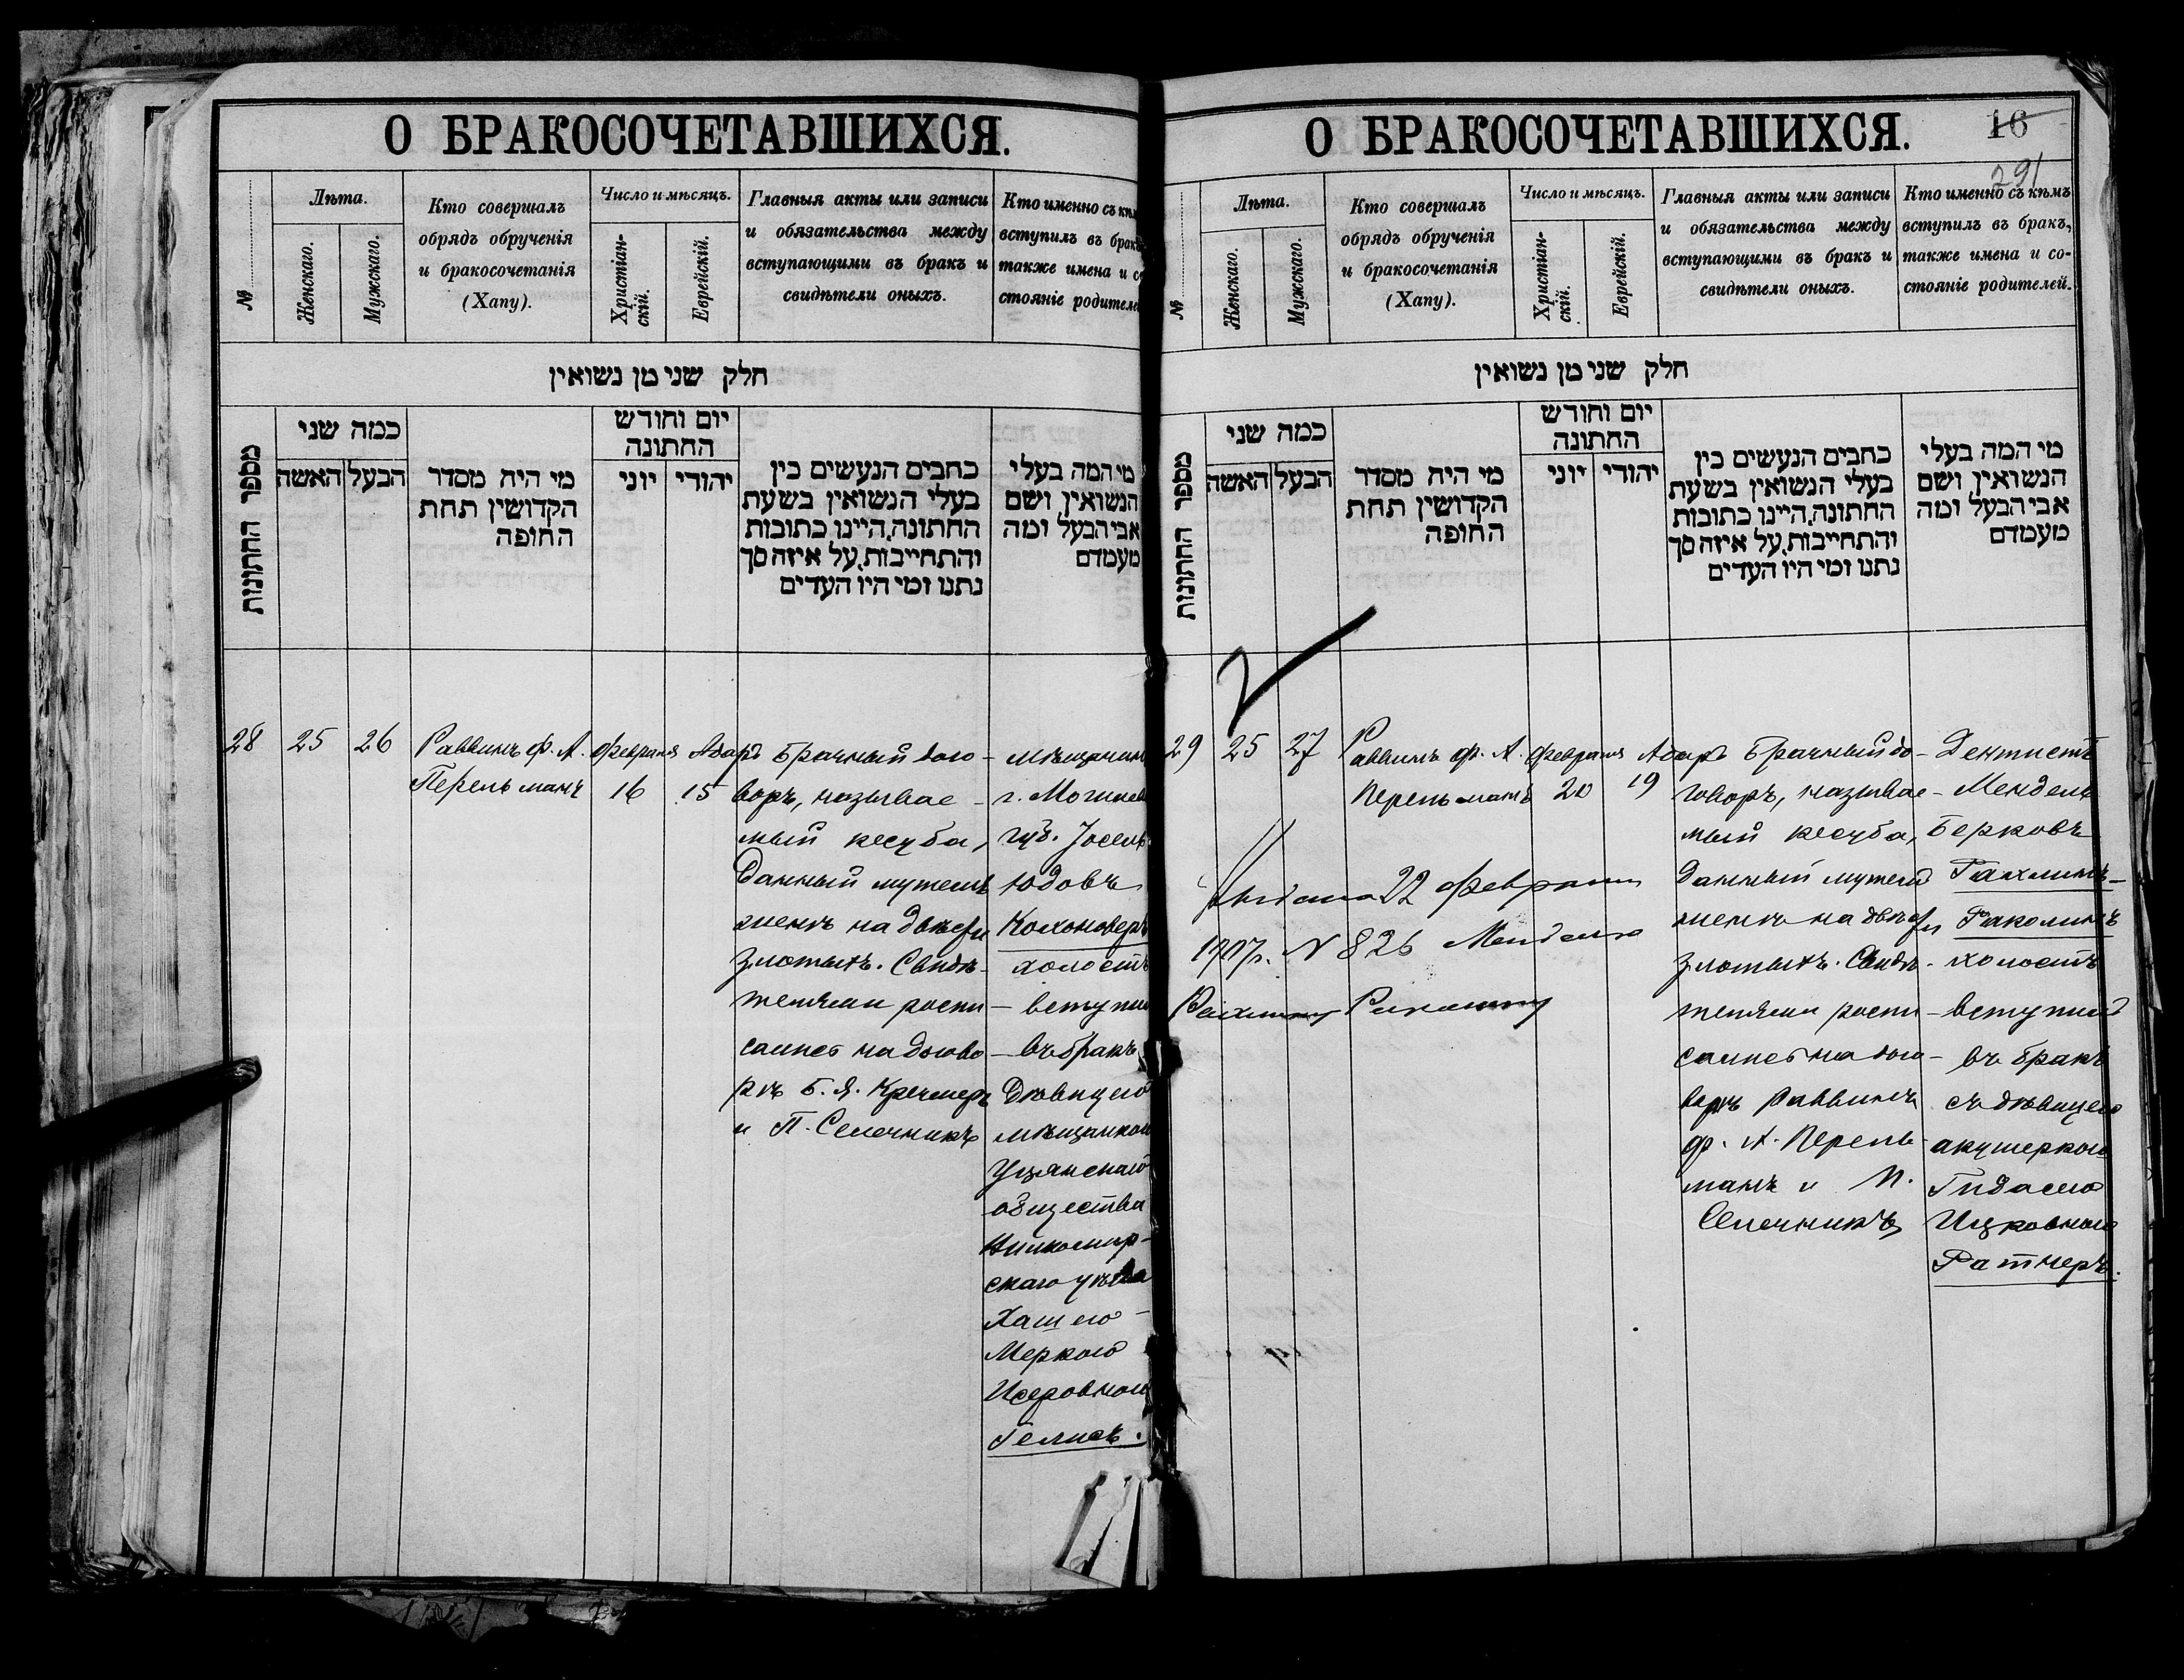 О БРАКОСОЧЕТАВШИХСЯ.
№
Лѣта.
Женскаго.
Мужскаго.
Кто совершалъ
обрядъ обрученія
и бракосочетанія
(Хапу).
Число и мѣсяцъ.
Христіан-
скій.
Еврейскій.
Главныя акты или записи
и обязательства между
вступающими въ бракъ и
свидѣтели оныхъ.
Кто именно съ
вступилъ въ
также имена и
стояніе
חלק שני מן נשואין
מספר החתונות
כמה שני
האשה
הבעל
מי היה מסדר
הקדושין תחת
החופה
יום וחודש
החתונה
יוני
יהודי
כתבים הנעשים בין
בעלי הנשואין בשעת
החתונה. היינו כתובות
והתחייבות, על איזה סך
נתנו ומי היו העדים
מי המה בעלי
הנשואין ושם
אבי הבעל ומה
מעמדם
28
25
26
Раввинъ Ф. А.
Перельманъ
Февраля
16
Адаръ
15
Брачный дого-
воръ, называе-
мый кесуба,
данный мужемъ
женѣ на двѣсти
злотыхъ. Свидѣ-
телями распи-
сались на догово-
рѣ Б. Я. Кречмеръ
и П. Селечникъ
мѣщанинъ
г. Могилев
губ. Іосель
Юдовъ
Кохановеръ
холостъ
вступил
въ бракъ
дѣвицею
мѣщанкою
Уцянскаго
общества
Вилкомир-
скаго уѣзда
Хашею-
Меркою
Исеровною
Гелисъ.
О БРАКОСОЧЕТАВШИХСЯ.
16
291
№
Лѣта.
Женскаго.
Мужскаго.
Кто совершалъ
обрядъ обрученія
и бракосочетанія
(Хапу).
Число и мѣсяцъ.
Христіан-
скій.
Еврейскій.
Главныя акты или записи
и обязательства между
вступающими въ бракъ и
свидѣтели оныхъ.
Кто именно съ кѣмъ
вступилъ въ бракъ,
также имена и со-
стояніе родителей.
חלק שני מן נשואין
מספר החתונות
כמה שני
האשה
הבעל
מי היה מסדר
הקדושין תחת
החופה
יום וחודש
החתונה
יוני
יהודי
כתבים הנעשים בין
בעלי הנשואין בשעת
החתונה. היינו כתובות
והתחייבות, על איזה סך
נתנו ומי היו העדים
מי המה בעלי
הנשואין ושם
אבי הבעל ומה
מעמדם
29
25
27
Раввинъ Ф. А.
Перельманъ
Февраля
20
Адаръ
19
Брачный до-
говоръ, называе-
мый кесуба,
данный мужемъ
женѣ на двѣсти
злотыхъ. Свидѣ-
телями распи-
сались на дого-
ворѣ Раввинъ
Ф. А. Перель-
манъ и П.
Селечникъ
Дентистъ
Мендель
Берковъ
Рахлинъ-
Раколинъ
холостъ
вступилъ
въ бракъ
съ дѣвицею
акушеркою
Гидасею
Ицковною
Ратнеръ.
Выдана 22 февраля
1907г. N 826 Менделю
Рахлину